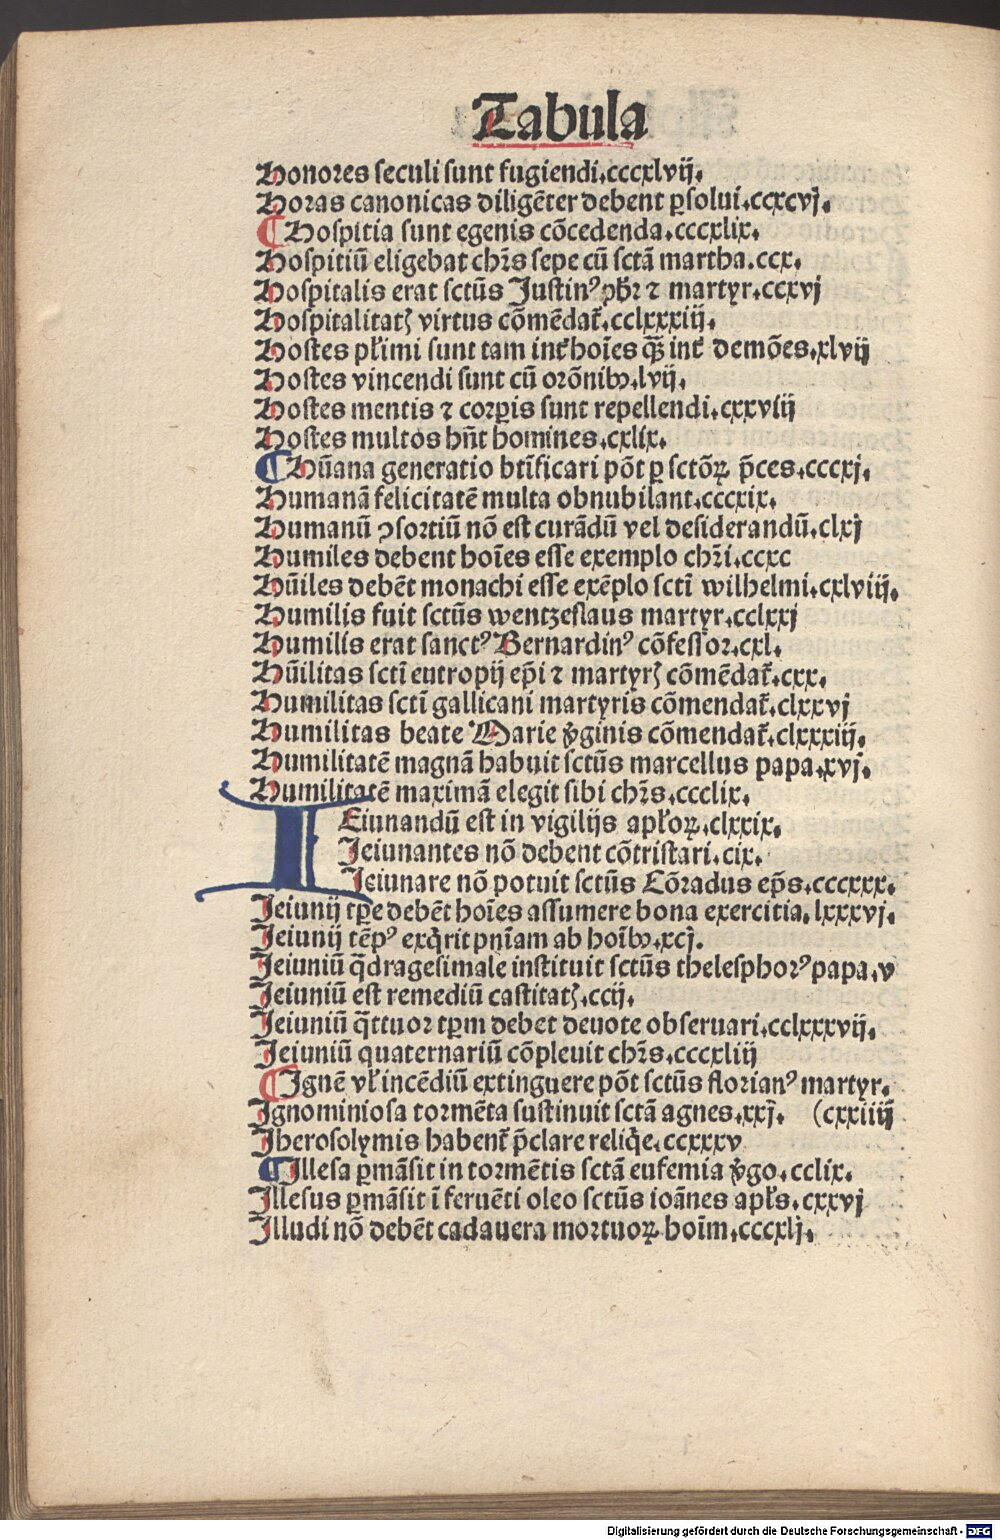 Tabula
Honores seculi sunt fugiendi.cccxlvij.
Horas canonicas diligēter debent ꝑsolui.ccxcvj.
¶Hospitia sunt egenis cōcedenda.cccxlix.
Hospitiū eligebat chr̄s sepe cū sctā martha.ccx.
Hospitalis erat sctūs Justinꝰ pb̄r ⁊ martyr.ccxvj
Hospitalitatꝭ virtus cōmēdat̄.cclxxxiij.
Hostes pl̄imi sunt tam int̄ hoīes qꝫ̄ int̄ demōes.xlvij
Hostes vincendi sunt cū orōnibꝰ.lvij.
Hostes mentis ⁊ corꝑis sunt repellendi.cxxviij
Hostes multos hn̄t homines.cxlix.
¶Hūana generatio btīficari pōt ꝑ sctōꝝ p̄ces.cccxj.
Humanā felicitatē multa obnubilant.cccxix.
Humanū ꝯsortiū nō est curādū vel desiderandū.clxj
Humiles debent hoīes esse exemplo chr̄i.ccxc
Hūiles debēt monachi esse exēplo sctī wilhelmi.cxlviij.
Humilis fuit sctūs wentzeslaus martyr.cclxxj
Humilis erat sanctꝰ Bernardinꝰ cōfessor.cxl.
Hūilitas sctī eutropij ep̄i ⁊ martyrꝭ cōmēdat̄.cxx.
Humilitas sctī gallicani martyris cōmendat̄.clxxvj
Humilitas beate Marie v̄ginis cōmendat̄.clxxxiij.
Humilitatē magnā habuit sctūs marcellus papa.xvj.
Humilitatē maximā elegit sibi chr̄s.ccclix.
IEiunandū est in vigilijs apl̄oꝝ.clxxix.
Jeiunantes nō debent cōtristari.cix.
Jeiunare nō potuit sctūs Cōradus ep̄s.cccxxx.
Jeiunij tꝑe debēt hoīes assumere bona exercitia.lxxxvj.
Jeiunij tēpꝰ exq̄rit pnīam ab hoībꝰ.xcj.
Jeiuniū q̄dragesimale instituit sctūs thelesphorꝰ papa.v
Jeiuniū est remediū castitatꝭ.ccij.
Jeiuniū q̄ttuor tꝑm debet deuote obseruari.cclxxxvij.
Jeiuniū quaternariū cōpleuit chr̄s.cccxliij
¶Ignē vl̄ incēdiū extinguere pōt sctūs florianꝰ martyr.
Ignominiosa tormēta sustinuit sctā agnes.xxj. (cxxiiij
Jherosolymis habent̄ p̄clare reliq̄e.ccxxxv
¶Illesa ꝑmāsit in tormētis sctā eufemia v̄go.cclix.
Illesus ꝑmāsit ī feruēti oleo sctūs ioānes apl̄s.cxxvj
Illudi nō debēt cadauera mortuoꝝ hoīm.cccxlj.
Digitalisierung gefördert durch die Deutsche Forschungsgemeinschaft - DFG